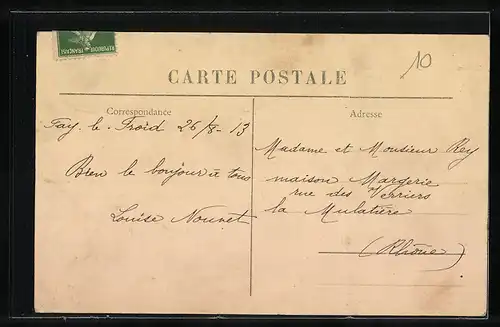 RÉPUBLIQUE FRANÇAISE
10
CARTE POSTALE
Correspondance
Adresse
Fay. le. Froid 26/8-13
Bien le bonjour à tous
Louise Nouvet
Madame et Monsieur Rey
maison Margerie
rue des Verriers
la Mulatière
(Rhône)